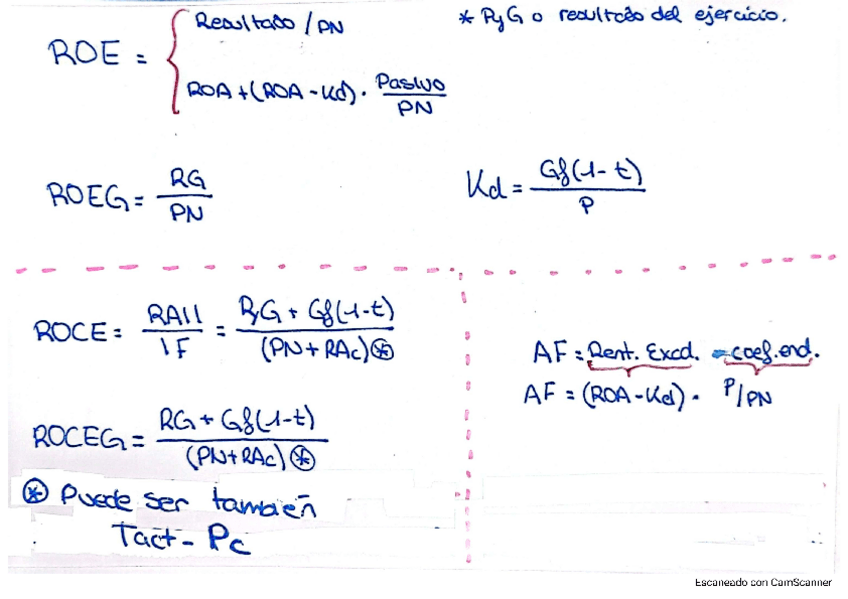 ROE = { Resultado / PN
ROA + (ROA - Kd) · Pasivo / PN
* PyG o resultado del ejercicio.
ROEG = RG / PN
Kd = Gf (1 - t) / P
ROCE = RAII / IF = PyG + Gf (1 - t) / (PN + RAc) ⊛
ROCEG = RG + Gf (1 - t) / (PN + RAc) ⊛
⊛ Puede ser también
Tact - Pc
AF = Rent. Exced. = coef. end.
AF = (ROA - Kd) · P / PN
Escaneado con CamScanner